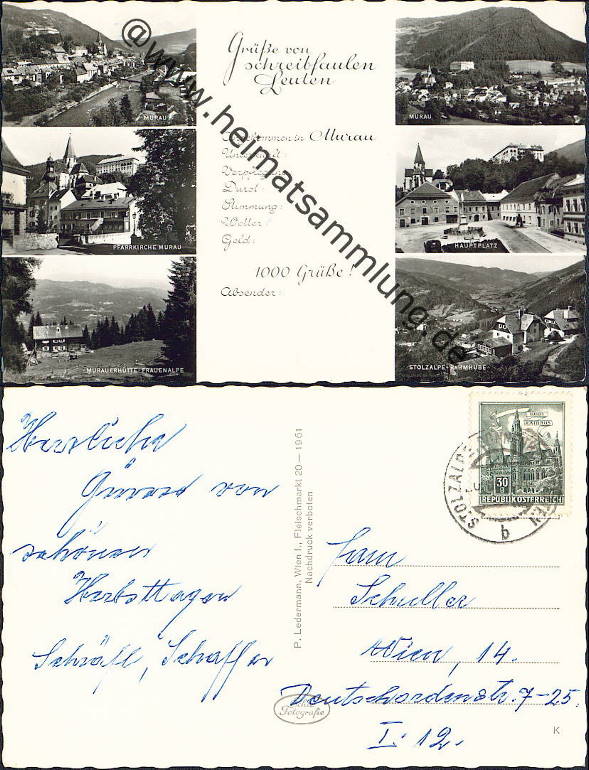 Grüße von
schreibfaulen
Leuten
Murau
1000 Grüße!
Absender:
Verpfleg
Durst:
Stimmung:
Wetter:
Geld:
MURAU
PFARRKIRCHE MURAU
MURAUERHÜTTE FRAUENALPE
MURAU
HAUPTPLATZ
STOLZALPE-RAHMHUBE
@www.heimatsammlung.de
Herzliche
Grüsse von
schönen
Herbsttagen
Schaffer
P. Ledermann, Wien I., Fleischmarkt 20 — 1961
Nachdruck verboten
30 g
REPUBLIK ÖSTERREICH
STOLZALPE
b
Schuller
Wien, 14.
Deutschordenstr. 7-25.
I. 12.
Fotografie
K